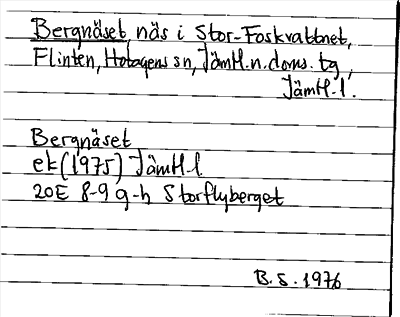 Bergnäset, näs i Stor-Foskvattnet,
Flinten, Hotagens sn, Jämtl. n. doms. tg,
Jämtl. l.
Bergnäset
ek (1975) Jämtl. l.
20E 8-9 g-h Storflyberget
B. S. 1976